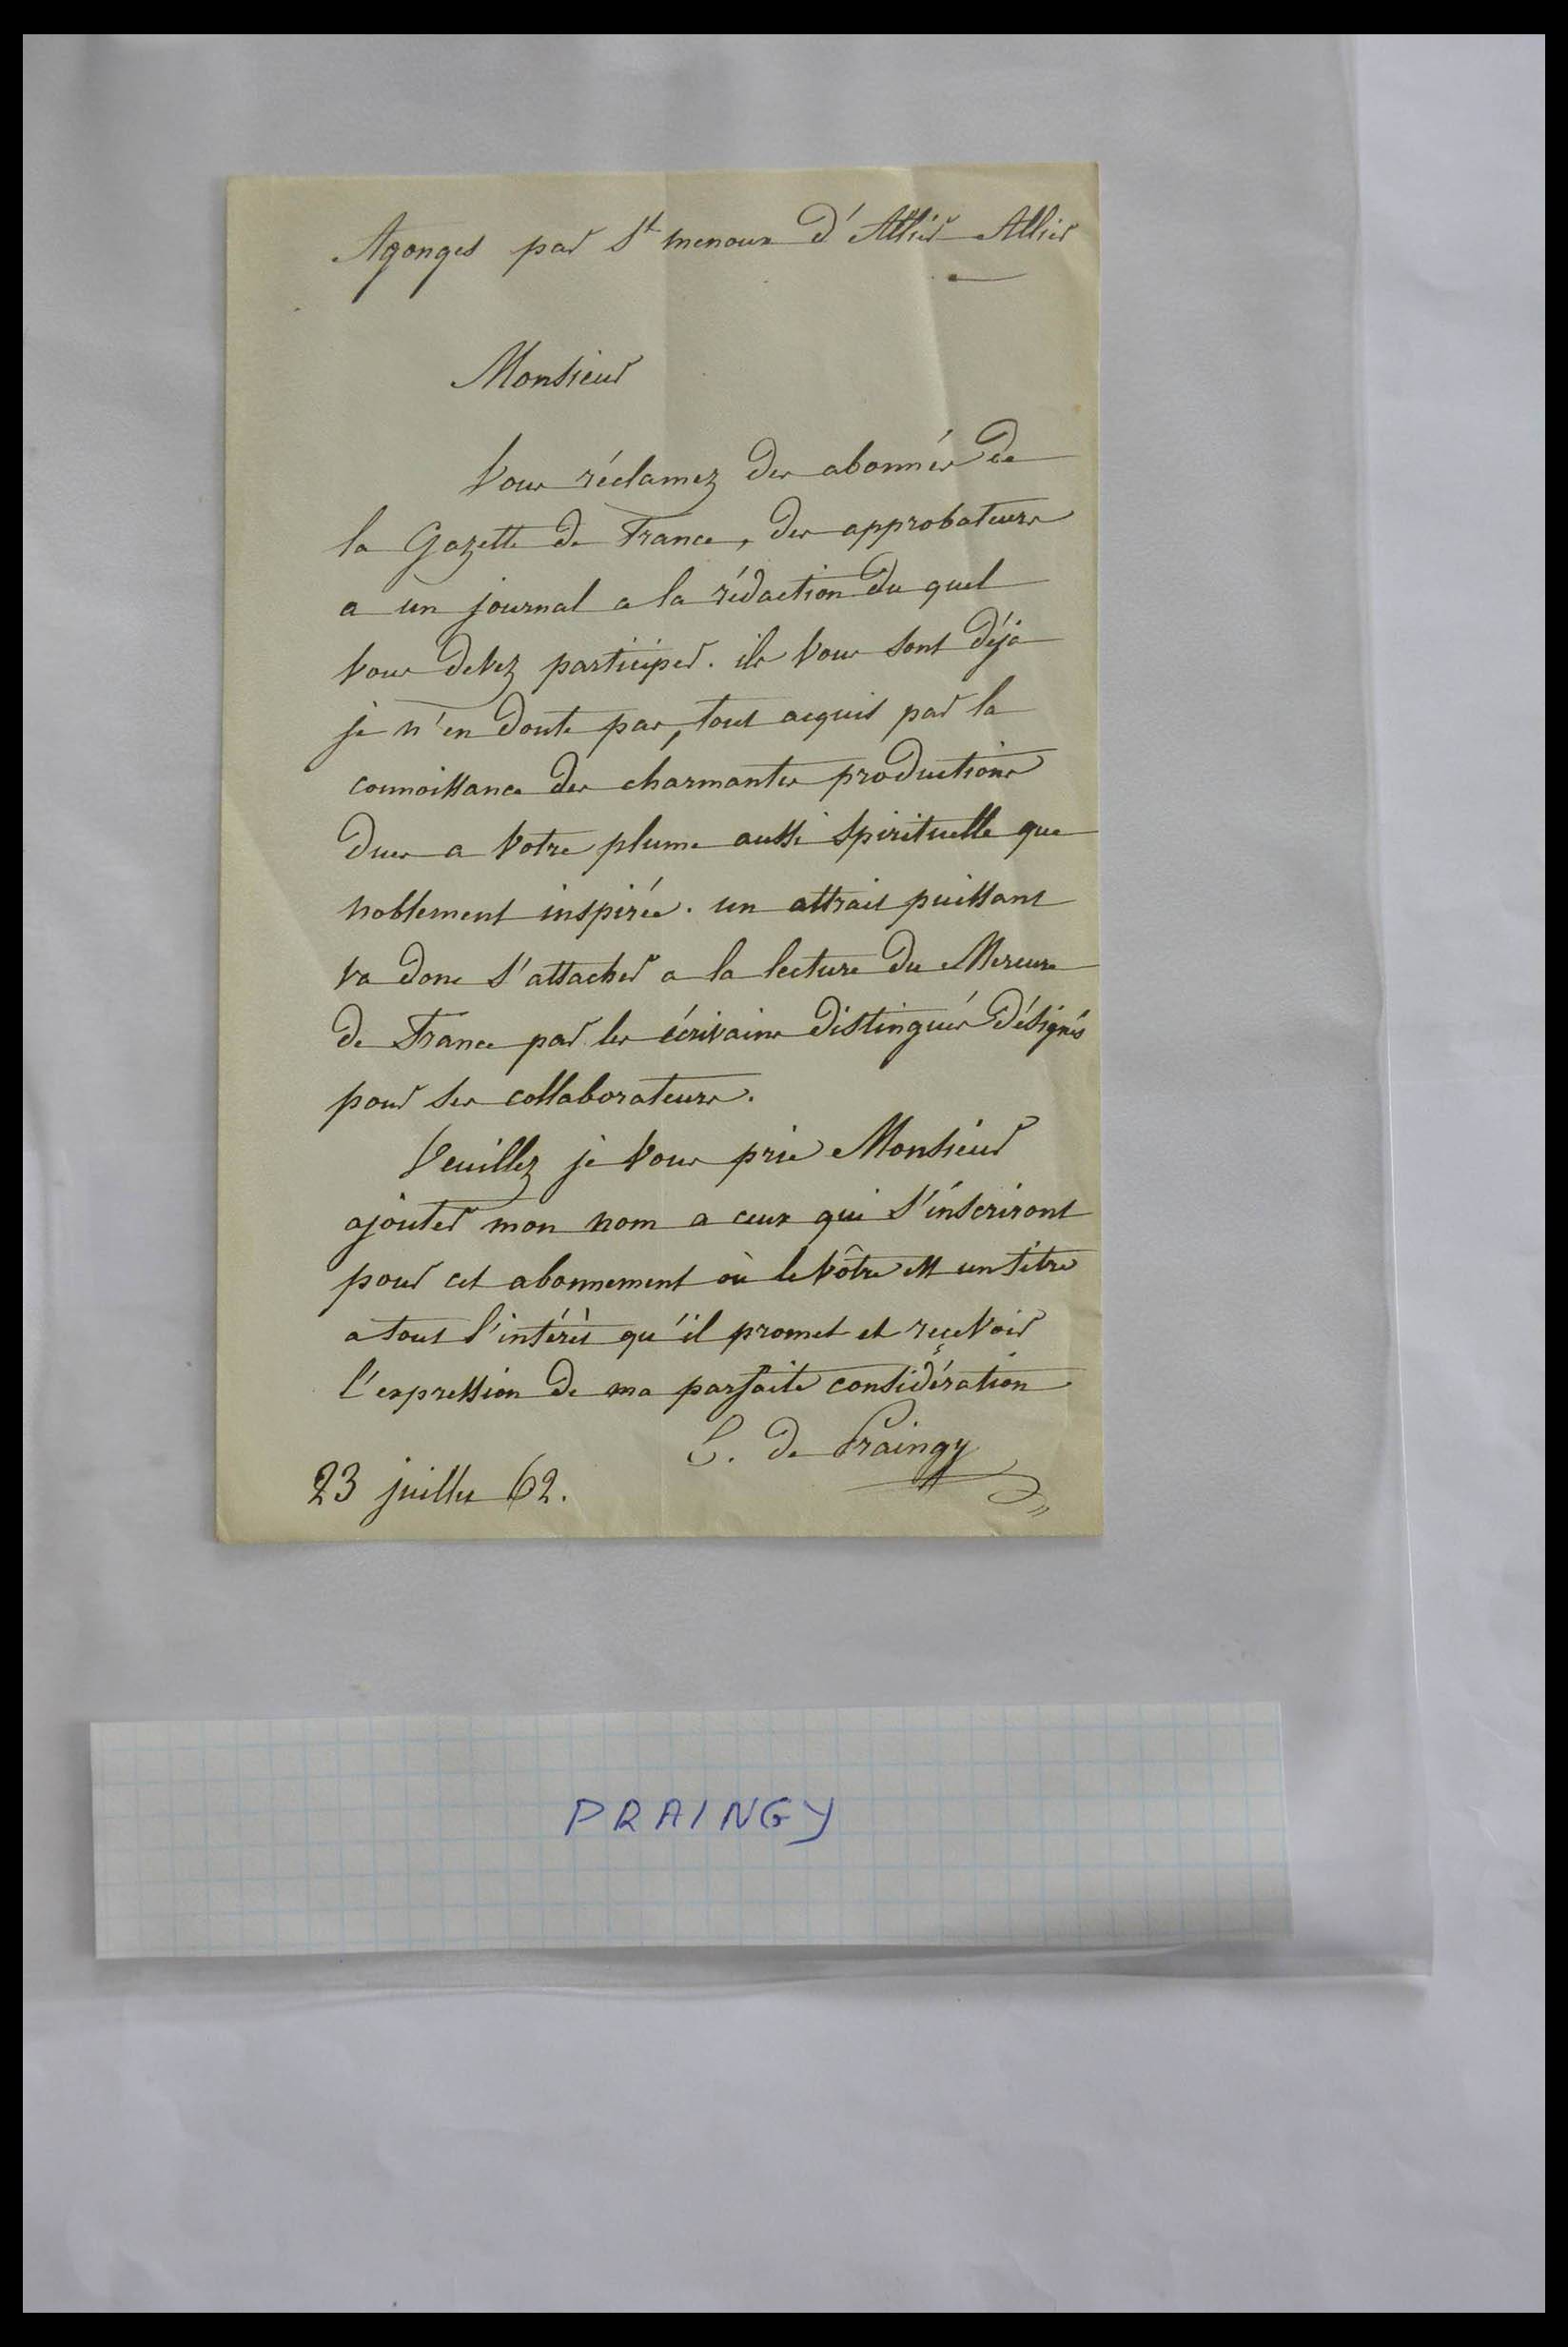 Agonges par St menoux d'Allier Allier
Monsieur
Vous réclamez des abonnés de
la Gazette de France, des approbateurs
a un journal a la rédaction du quel
vous devez participer. ils vous sont déja
je n'en doute pas, tout acquis par la
connoissance des charmantes productions
dues a votre plume aussi spirituelle que
noblement inspirée. un attrait puissant
va donc s'attacher a la lecture du Mercure
de France par les écrivains distingués désignés
pour ses collaborateurs.
Veuillez je vous prie Monsieur
ajouter mon nom a ceux qui s'inscriront
pour cet abonnement où le vôtre est un titre
a tout l'intérêt qu'il promet et reçevoir
l'expression de ma parfaite considération
de Praingy
23 juillet 62.
PRAINGY